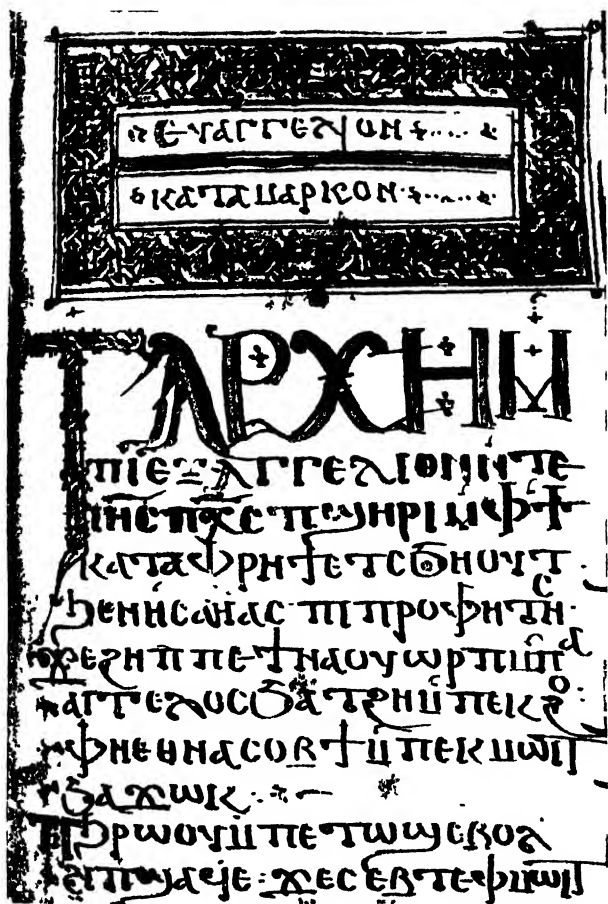 ⲉⲩⲁⲅⲅⲉⲗⲓⲟⲛ
ⲕⲁⲧⲁ ⲙⲁⲣⲕⲟⲛ
ⲧⲁⲣⲭⲏ ⲙ
ⲡⲓⲉⲩⲁⲅⲅⲉⲗⲓⲟⲛ ⲛ̀ⲧⲉ
ⲓⲏⲥ ⲡⲭⲥ ⲡϣⲏⲣⲓ ⲙⲫϯ
ⲕⲁⲧⲁ ⲫⲣⲏϯ ⲉⲧⲥϧⲏⲟⲩⲧ
ϧⲉⲛ ⲏⲥⲁⲏⲁⲥ ⲡⲓⲡⲣⲟⲫⲏⲧⲏⲥ
ϫⲉ ϩⲏⲡⲡⲉ ϯⲛⲁⲟⲩⲱⲣⲡ ⲙ̀ⲡⲁ
ⲁⲅⲅⲉⲗⲟⲥ ϧⲁⲧϩⲏ ⲙ̀ⲡⲉⲕϩⲟ:
ⲫⲏⲉⲑⲛⲁⲥⲟⲃϯ ⲙ̀ⲡⲉⲕⲙⲱⲓⲧ
ϧⲁϫⲱⲕ
ⲡϧⲣⲱⲟⲩ ⲙ̀ⲡⲉⲧⲱϣ ⲉⲃⲟⲗ
ϩⲓ ⲡϣⲁϥⲉ: ϫⲉ ⲥⲉⲃⲧⲉ ⲫⲙⲱⲓⲧ